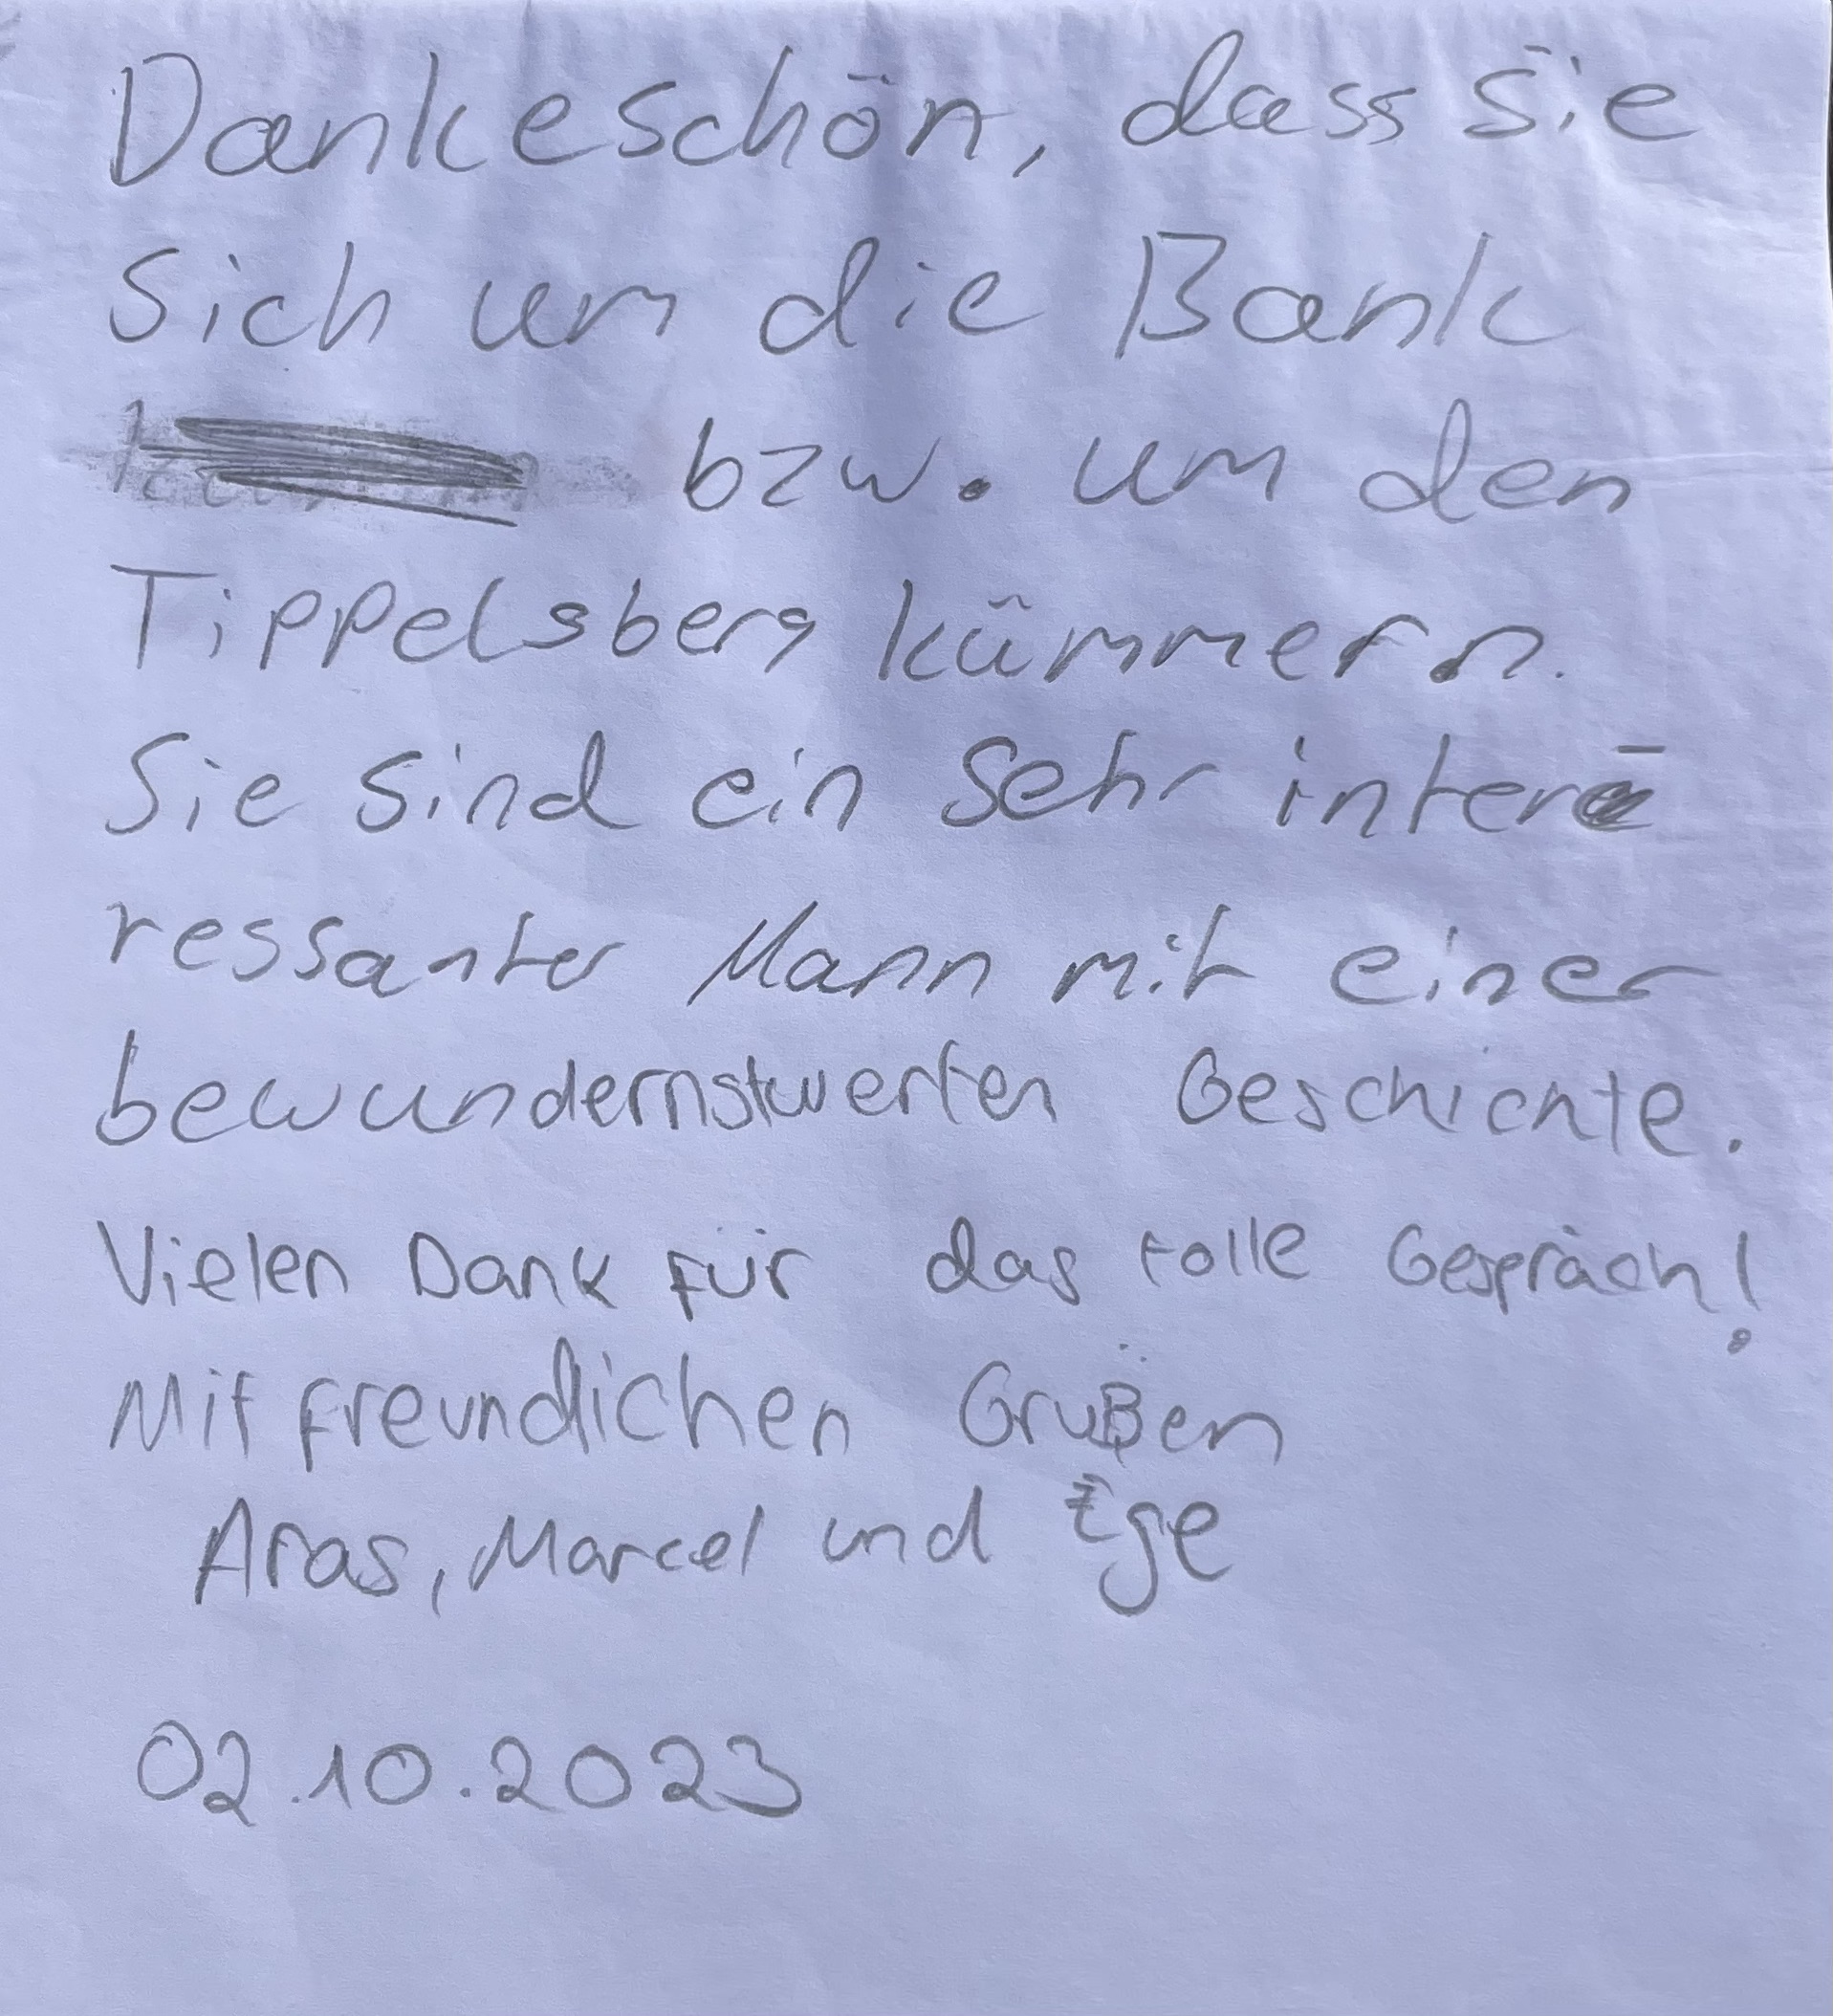 Dankeschön, dass Sie
sich um die Bank
bzw. um den
Tippelsberg kümmern.
Sie sind ein sehr inte
ressanter Mann mit einer
bewundernstwerten Geschichte.
Vielen Dank für das tolle Gespräch!
Mit freundlichen Grüßen
Aras, Marcel und Ege
02.10.2023